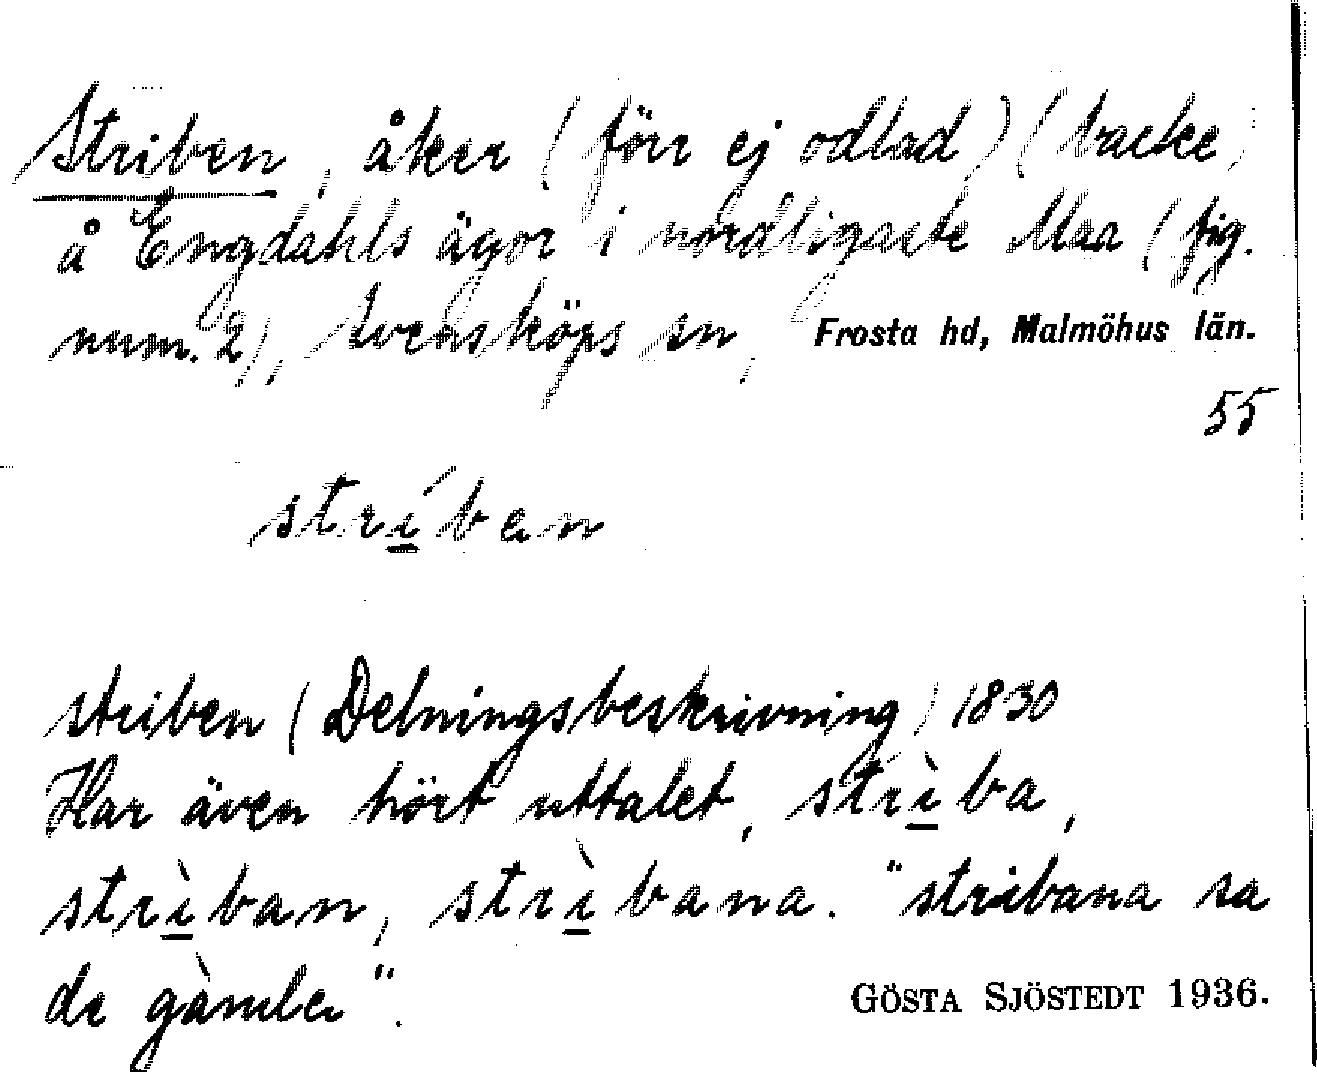 Striben, åker (förr ej odlad) (backe)
å Engdahls ägor i nordligaste Maa (fig.
num. 2), Svensköps sn, Frosta hd, Malmöhus län.
55
stríben
striben (Delningsbeskrivning) 1830
Har även hört uttalet, strìba,
strìban, strìbana. "stribana sa
de gàmle".
GÖSTA SJÖSTEDT 1936.